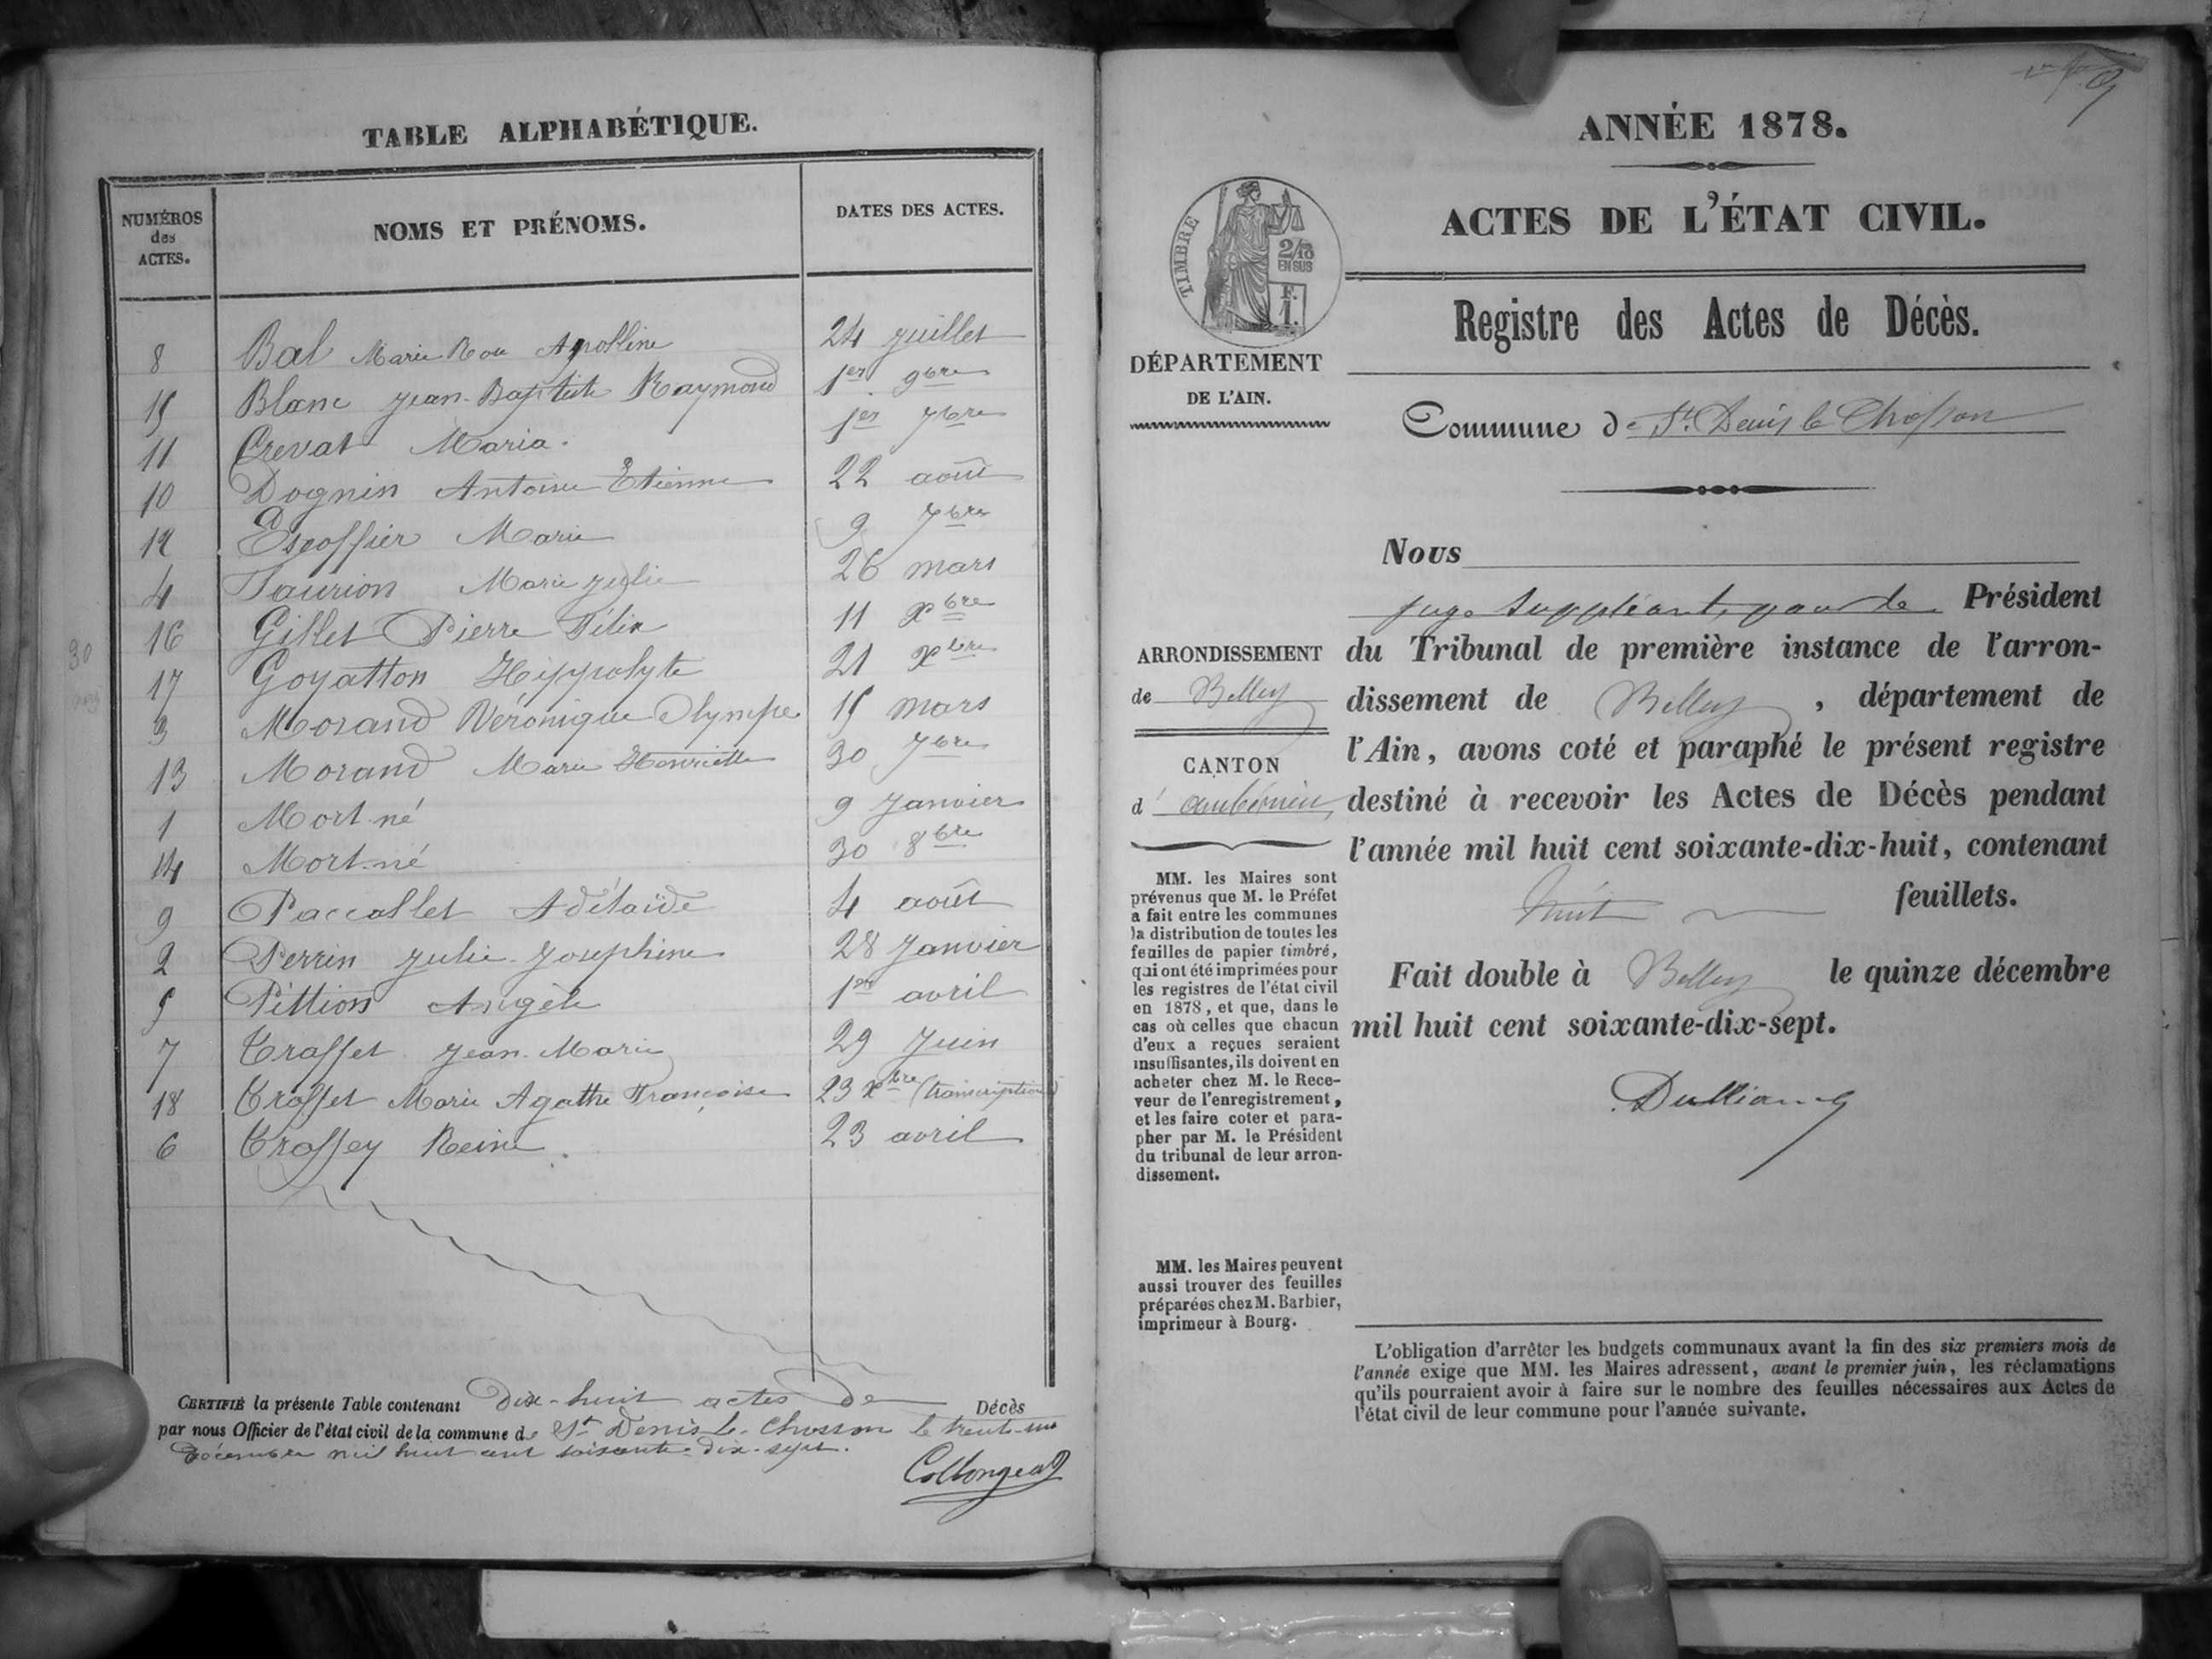 TABLE ALPHABÉTIQUE.
NUMÉROS des ACTES.
NOMS ET PRÉNOMS.
DATES DES ACTES.
8 Bal Marie Apolline 24 juillet
15 Blanc Jean-Baptiste Raymond 1er 9bre
11 Crevat Maria. 1er 7bre
10 Dognin Antoine Etienne 22 août
12 Escoffier Marie 9 7bre
4 Faurion Marie Julie 26 mars
16 Gillet Pierre Félix 11 Xbre
17 Goyatton Hippolyte 21 Xbre
3 Morand Véronique Olympe 15 mars
13 Morand Marie Henriette 30 7bre
1 Mort-né 9 Janvier
14 Mort-né 30 8bre
9 Paccallet Adélaïde 4 août
2 Perrin Julie Joséphine 28 Janvier
5 Pittion Angèle 1er avril
7 Traffet Jean-Marie 29 Juin
18 Traffet Marie Agathe Françoise 23 Xbre (transcription)
6 Troffey Reine. 23 avril
30
CERTIFIÉ la présente Table contenant Dix-huit actes de Décès
par nous Officier de l'état civil de la commune de St Denis-le-Chosson le trente-un
Décembre mil huit cent soixante-dix-sept.
Collongeat
ANNÉE 1878.
ACTES DE L'ÉTAT CIVIL.
TIMBRE
2/10
EN SUS
F.
1.
DÉPARTEMENT
DE L'AIN.
Registre des Actes de Décès.
Commune de St. Denis le Chosson
Nous
juge suppléant, pour le Président
ARRONDISSEMENT
de Belley
CANTON
d' ambérieu
du Tribunal de première instance de l'arron-
dissement de Belley, département de
l'Ain, avons coté et paraphé le présent registre
destiné à recevoir les Actes de Décès pendant
l'année mil huit cent soixante-dix-huit, contenant
huit feuillets.
Fait double à Belley le quinze décembre
mil huit cent soixante-dix-sept.
MM. les Maires sont
prévenus que M. le Préfet
a fait entre les communes
la distribution de toutes les
feuilles de papier timbré,
qui ont été imprimées pour
les registres de l'état civil
en 1878, et que, dans le
cas où celles que chacun
d'eux a reçues seraient
insuffisantes, ils doivent en
acheter chez M. le Rece-
veur de l'enregistrement,
et les faire coter et para-
pher par M. le Président
du tribunal de leur arron-
dissement.
MM. les Maires peuvent
aussi trouver des feuilles
préparées chez M. Barbier,
imprimeur à Bourg.
L'obligation d'arrêter les budgets communaux avant la fin des six premiers mois de
l'année exige que MM. les Maires adressent, avant le premier juin, les réclamations
qu'ils pourraient avoir à faire sur le nombre des feuilles nécessaires aux Actes de
l'état civil de leur commune pour l'année suivante.